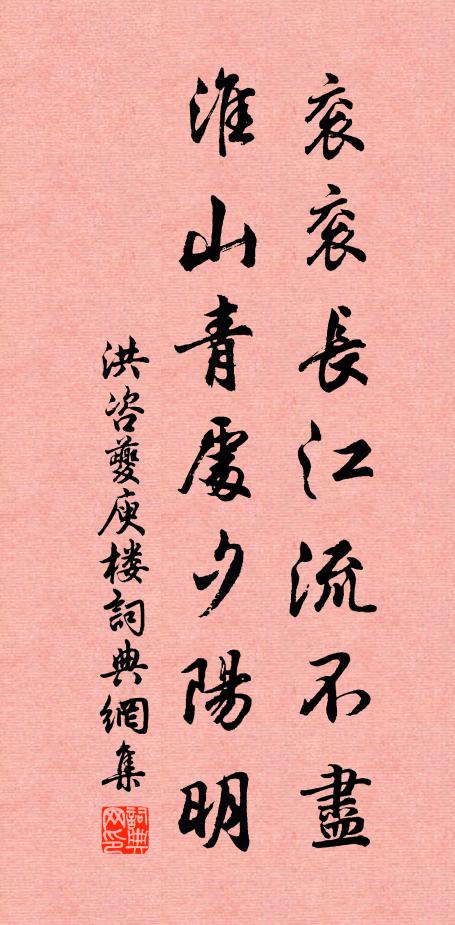 衮衮長江流不盡
淮山青處夕陽明
洪咨夔庾楼詞典網集
詞典网印